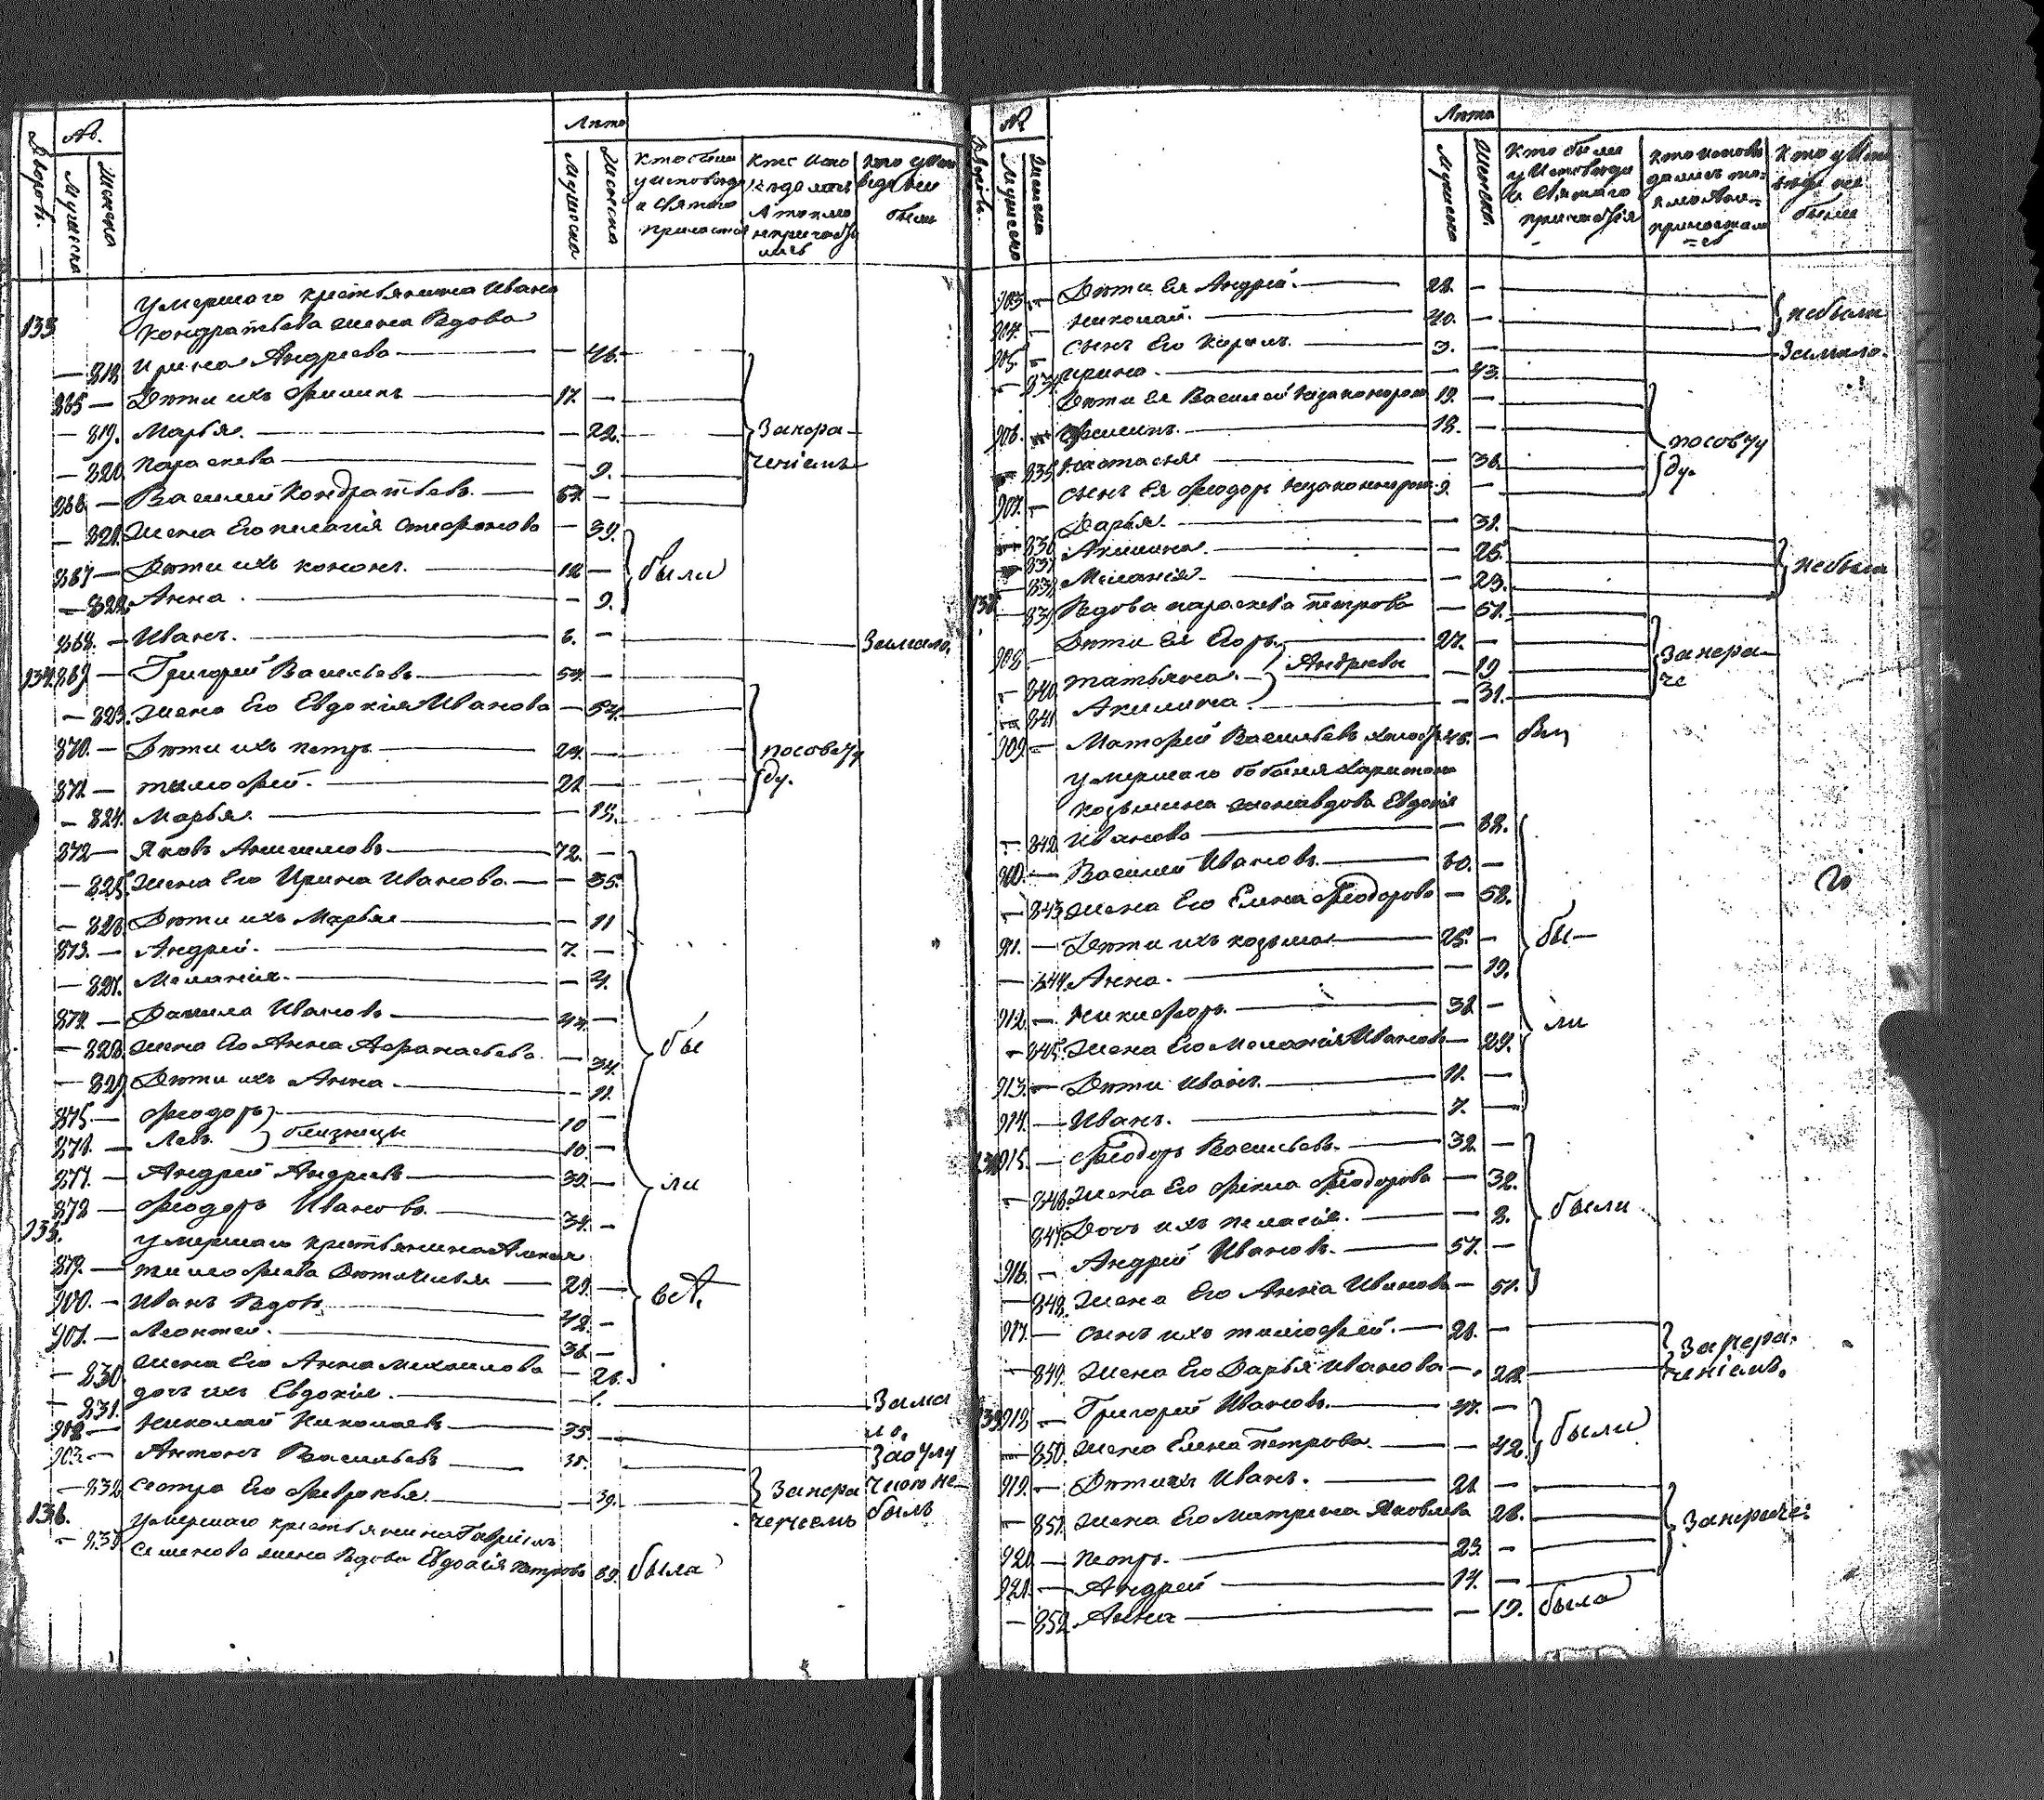 Дворовъ.
№.
Мужеска
Женска
Лѣта
Мужеска
Женска
Кто были
у исповеди
и святаго
причастія
Кто испо
ведались
а токмо
непричасти
лись
Кто у испо
веди не
были
133
умершаго крестьянина Ивана
Кондратьева жена вдова
— 818 Ирина Андреева — 46.
865 — Дѣти ихъ Филипъ 17. —
— 819. Марья. — 22.
— 820. Параскева — 9.
866 — Василей Кондратьевъ. 67. —
Запора
ченіемъ
— 821. Жена Его Пелагія Стефанова — 39.
867 — Дѣти ихъ Кононъ. 12 —
— 822. Анна. — 9.
были
868. — Иванъ. 6. — Замало.
134. 869 — Григорей Васильевъ 54. —
— 823. Жена Его Евдокія Иванова — 54.
870. — Дѣти ихъ Петръ 24. —
871 — Тимофей. 21 —
— 824. Марья. — 18.
посовѣту
ду.
872 — Яковъ Анисимовъ 72. —
— 825. Жена Его Ирина Иванова. — 35.
— 826. Дѣти ихъ Марья — 11
873. — Андрей. 7. —
— 827. Меланія. — 4.
874. — Данила Ивановъ 44. —
— 828. Жена Его Анна Афанасьева. — 34.
— 829. Дѣти ихъ Анна. — 11.
875. — Феодоръ 10 —
876. — Левъ. близнецы 10. —
877. — Андрей Андреевъ 39. —
878 — Феодоръ Ивановъ. 34. —
бы
ли
135.
умершаго крестьянина Алексея
879. — Тимофеева Дѣти Илья 29. —
900. — Иванъ Вдовъ 42. —
901. — Леонтей. 36. —
— 830. Жена Его Анна Михайлова — 26.
— 831. дочь ихъ Евдокія. — 1. Зама
ло.
902 — Николай Николаевъ 35. —
903. — Антонъ Васильевъ 35.
— 832 сестра Его Февронья. — 39.
Запора
ченіемъ
не
былъ
136.
умершаго крестьянина Гаврилы
— 833 Семенова жена вдова Евдокія Петрова 89. была
Дворовъ.
№
Мужеска
Женска
Лѣта
Мужеска
Женска
Кто были
у исповеди
и святаго
причастія
Кто испове
дались то
кмо не
причастили
сь
Кто у испо
веди не
были
903. — Дѣти Ея Андрей. 22. —
904. — Николай. 40. —
небыли
905. — сынъ Его Карпъ. 3. — Замало.
— Ирина. — 43.
Дѣти Ея Василей незаконорож 19. —
906. Филипъ. 18. —
— 835 Настасья — 36.
907. — сынъ Ея Феодоръ незаконорож. 9. —
посовѣту
ду.
— 836 Дарья. — 31.
— 837 Акилина. — 26.
— 838 Меланія. — 23.
небыли
137 — 839 Вдова Параскева Петрова — 57.
908 — Дѣти Ея Егоръ. 27. —
— 840 Татьяна. Андреевы — 19
— 841 Акилина. — 31.
Запора
че
909. — Матфей Васильевъ холостъ 45. — былъ
умершаго бобыля Харитона
Козьмина жена вдова Евдокія
— 842 Иванова — 82.
910. — Василей Ивановъ. 60. —
— 843. Жена Его Елена Феодорова — 58.
911. — Дѣти ихъ Козьма. 25. —
— 844. Анна. — 19.
912. — Никифоръ. 36 —
— 845. Жена Его Меланія Иванова — 29.
913. — Дѣти Иванъ. 11. —
914. — Иванъ. 7. —
бы
ли
915. — Феодоръ Васильевъ. 32. —
— 846. Жена Его Фекла Феодорова — 32.
847. Дочь ихъ Пелагія. — 8.
916. — Андрей Ивановъ. 57. —
— 848. Жена Его Анна Иванова — 51.
были
917. — сынъ ихъ Тимофей. 21. —
— 849. Жена Его Дарья Иванова — 22.
Запора
ченіемъ.
139 918. — Григорей Ивановъ. 37. —
— 850. Жена Елена Петрова. — 42.
были
919. — Дѣти ихъ Иванъ. 21 —
— 851. Жена Его Матрена Яковлева 28.
920. — Петръ. 23. —
921. — Андрей 14. —
Запораче:
— 852. Анна — 19. была